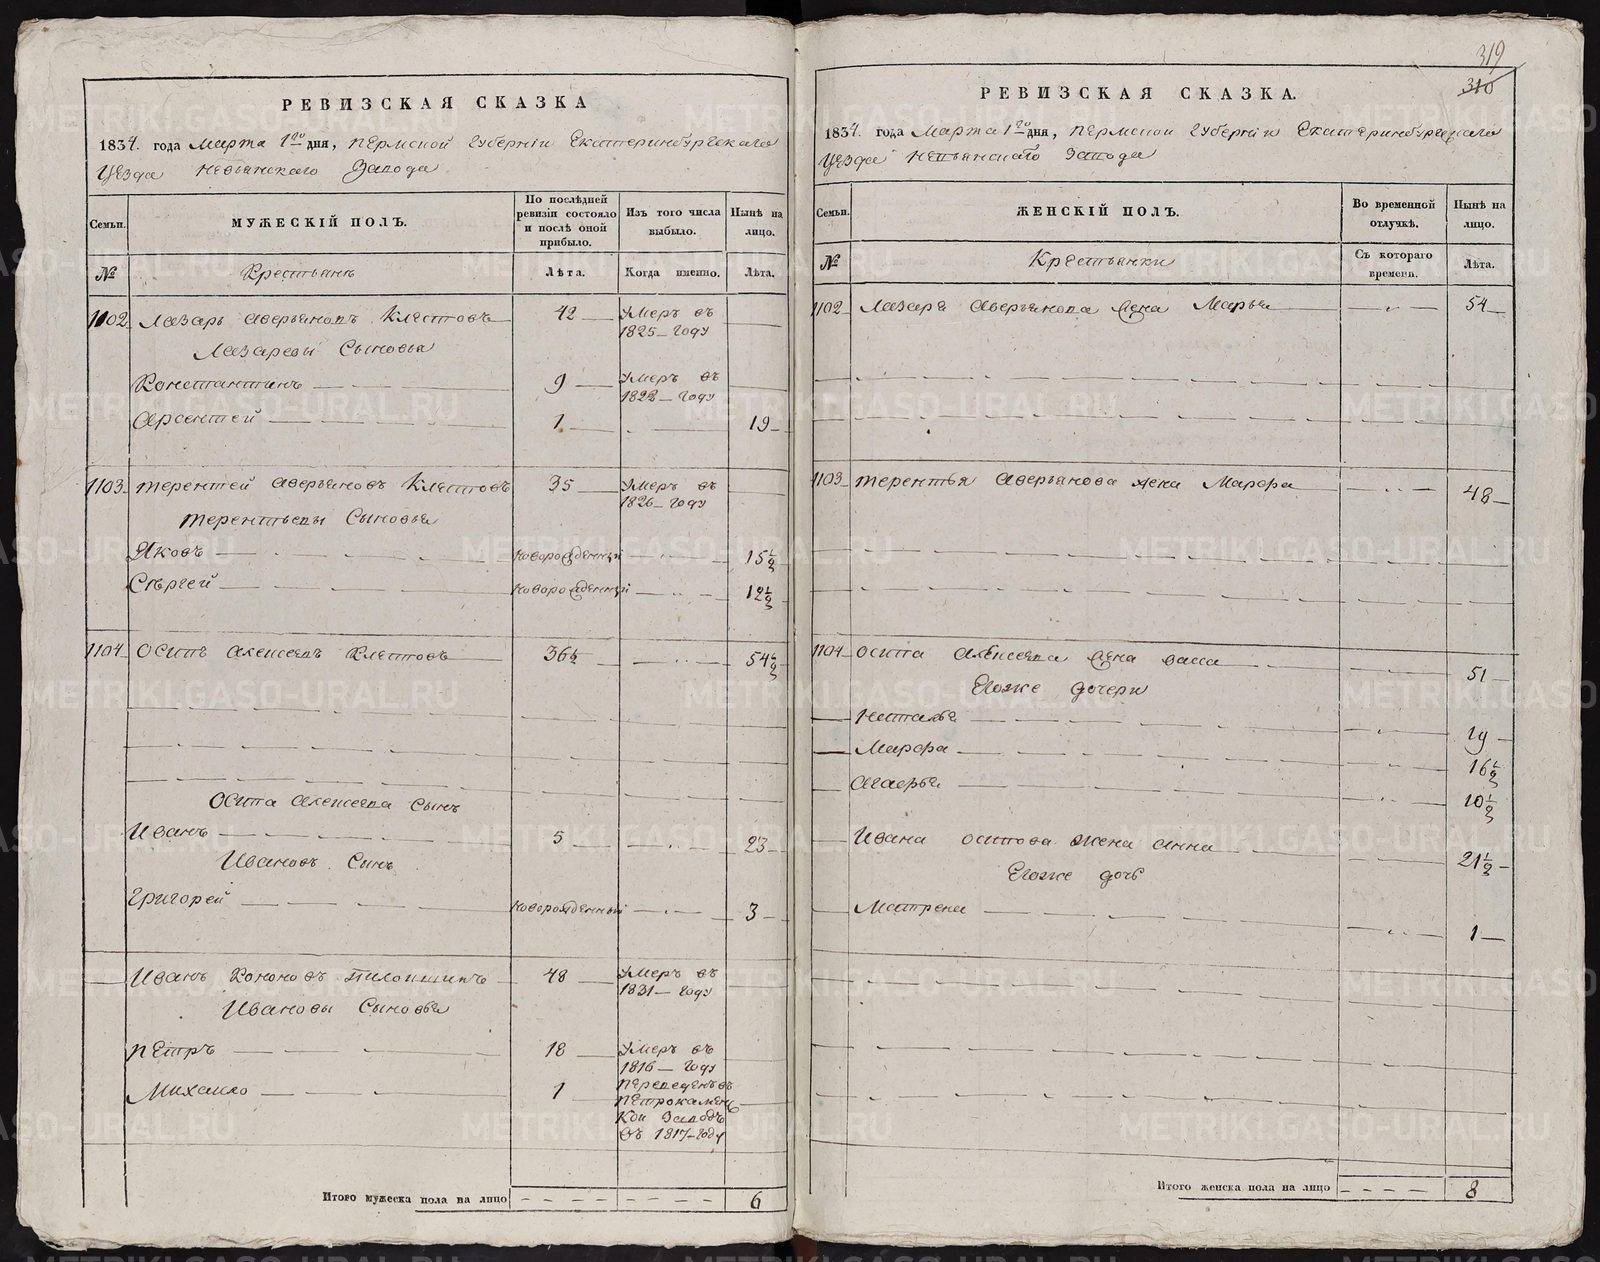 РЕВИЗСКАЯ СКАЗКА
1834. года Марта 1го дня, Пермской Губернiи Екатеринбургскаго
Уезда Невьянскаго Завода
Семьи.
МУЖЕСКІЙ ПОЛЪ.
По послѣдней ревизіи состояло и послѣ оной прибыло.
Изъ того числа выбыло.
Нынѣ на лицо.
№
Крестьянъ
Лѣта.
Когда именно.
Лѣта.
1102 Лазарь Аверьяновъ Клестовъ 42 Умеръ въ
1825 году
Лазаревы Сыновья
Константинъ 9 Умеръ въ
1822 году
Арсентей 1 19
1103 Терентей Аверьяновъ Клестовъ 35 Умеръ въ
1826 году
Терентьевы Сыновья
Яковъ новорожденный 15½
Сергей новорожденный 12½
1104 Осипъ Алексеевъ Клестовъ 36½ 54½
Осипа Алексеева сынъ
Иванъ 5 23
Ивановъ Сынъ
Григорей новорожденный 3
Иванъ Кононовъ 48 Умеръ въ
1831 году
Ивановы Сыновья
Петръ 18 Умеръ въ
1816 году
Михайло 1 Переведенъ въ
Петрокамен
кой Заводъ
въ 1817 году
Итого мужеска пола на лицо 6
319
310
РЕВИЗСКАЯ СКАЗКА.
1834. года Марта 1го дня, Пермской Губернiи Екатеринбургскаго
Уезда Невьянскаго Завода
Семьи.
ЖЕНСКІЙ ПОЛЪ.
Во временной отлучкѣ.
Нынѣ на лицо.
№
Крестьянки
Съ котораго времени.
Лѣта.
1102 Лазаря Аверьянова жена Марья 54
1103 Терентья Аверьянова жена Марфа 48
1104 Осипа Алексеева жена Васса 51
Егоже дочери
Наталья 19
Марфа 16½
Агафья 10½
Ивана Осипова жена Анна 21½
Егоже дочь
Матрена 1
Итого женска пола на лицо 8
METRIKI.GASO-URAL.RU